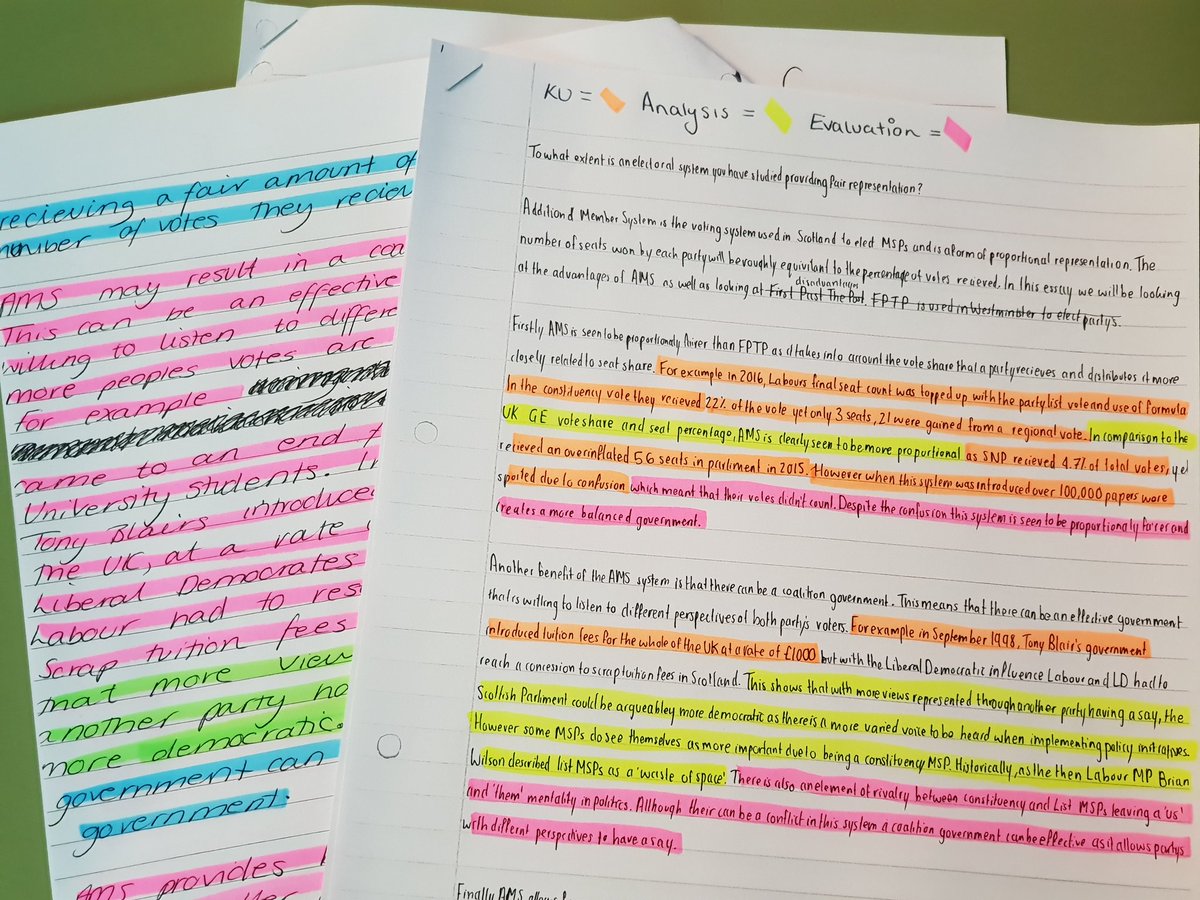 recieving a fair amount of
number of votes they recie
AMS may result in a coa
This can be an effective
willing to listen to differe
more peoples votes are
for example
came to an end
University students. In
Tony Blairs introduce
the UK, at a rate
Liberal Democrates
Labour had to res
Scrap tuition fees
that more view
another party ha
more democratic.
government can
government.
AMS provides
KU = Analysis = Evaluation =
To what extent is an electoral system you have studied providing fair representation?
Additional Member System is the voting system used in Scotland to elect MSPs and is a form of proportional representation. The
number of seats won by each party will be roughly equivilant to the percentage of votes recieved. In this essay we will be looking
disadvantages
at the advantages of AMS as well as looking at First Past The Post. FPTP is used in Westminster to elect party's.
Firstly AMS is seen to be proportionaly fairer than FPTP as it takes into account the vote share that a party recieves and distributes it more
closely related to seat share. For example in 2016, Labours final seat count was topped up with the party list vote and use of formula
In the constituency vote they recieved 22% of the vote yet only 3 seats, 21 were gained from a regional vote. In comparison to the
UK GE vote share and seat percentage, AMS is clearly seen to be more proportional as SNP recieved 4.7% of total votes, yet
recieved an overinflated 56 seats in parliment in 2015. However when this system was introduced over 100,000 papers were
spoiled due to confusion which meant that their votes didn't count. Despite the confusion this system is seen to be proportionaly fairer and
creates a more balanced government.
Another benefit of the AMS system is that there can be a coalition government. This means that there can be an effective government
that is willing to listen to different perspectives of both party's voters. For example in September 1998, Tony Blair's government
introduced tuition fees for the whole of the UK at a rate of £1000 but with the Liberal Democratic influence Labour and LD had to
reach a concession to scrap tuition fees in Scotland. This shows that with more views represented through another party having a say, the
Scottish Parliment could be argueabley more democratic as there is a more varied voice to be heard when implementing policy initiatives.
However some MSPs do see themselves as more important due to being a constituency MSP. Historically, as the then Labour MP Brian
Wilson described list MSPs as a 'waste of space'. There is also an element of rivalry between constituency and List MSPs leaving a 'us'
and 'them' mentality in politics. Although their can be a conflict in this system a coalition government can be effective as it allows partys
with different perspectives to have a say.
Finally AMS allows